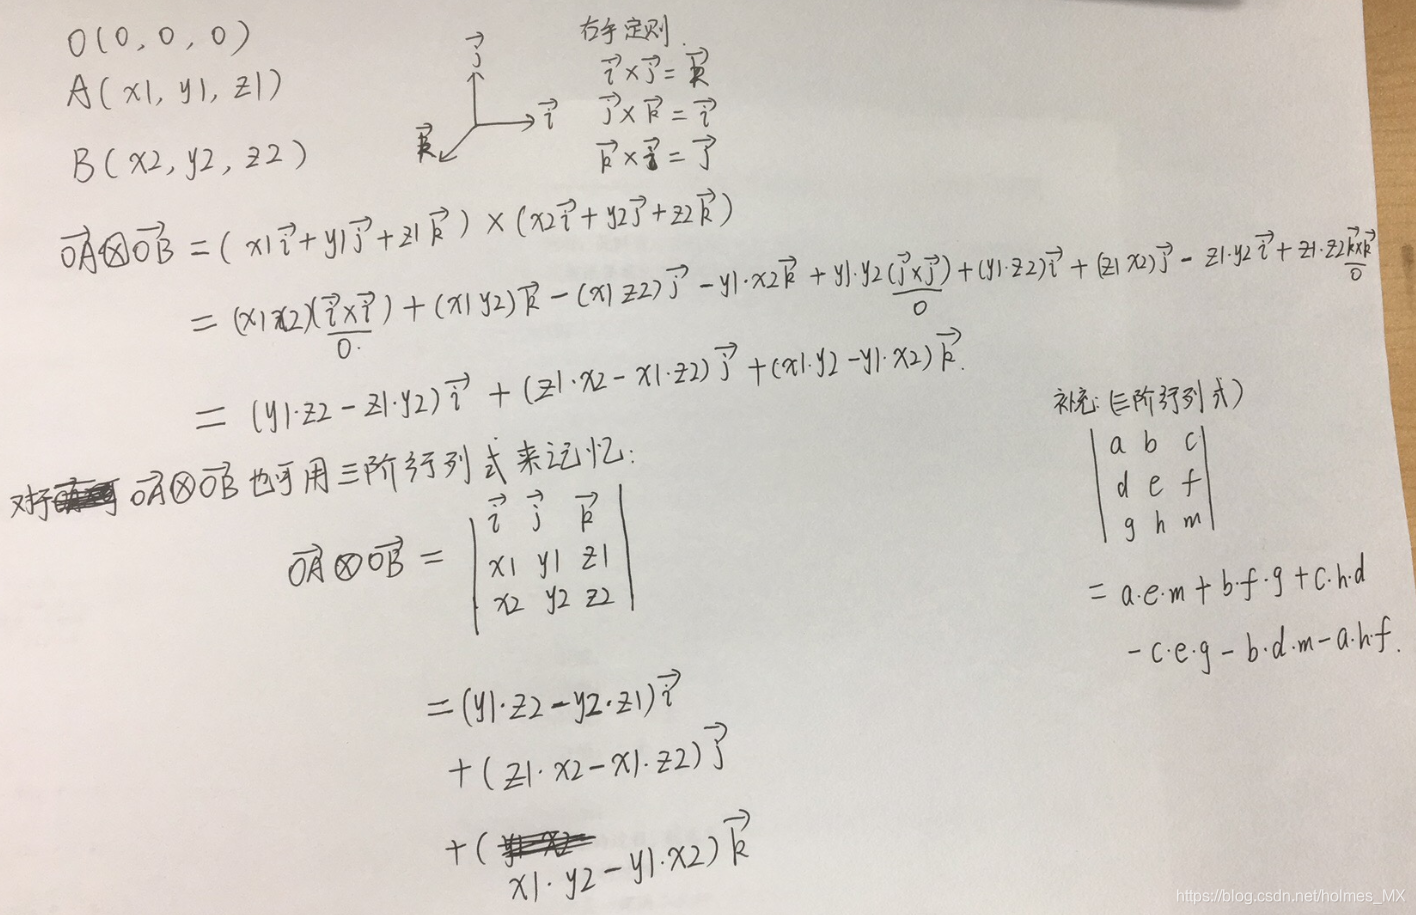 O(0, 0, 0)
A(x1, y1, z1)
B(x2, y2, z2)
j⃗
i⃗
k⃗
右手定则.
i⃗ × j⃗ = k⃗
j⃗ × k⃗ = i⃗
k⃗ × i⃗ = j⃗
OA⃗ ⊗ OB⃗ = (x1 i⃗ + y1 j⃗ + z1 k⃗) × (x2 i⃗ + y2 j⃗ + z2 k⃗)
= (x1 x2)(i⃗ × i⃗) + (x1 y2) k⃗ - (x1 z2) j⃗ - y1·x2 k⃗ + y1·y2 (j⃗ × j⃗) + (y1·z2) i⃗ + (z1 x2) j⃗ - z1·y2 i⃗ + z1·z2 k⃗×k⃗
0. 0 0
= (y1·z2 - z1·y2) i⃗ + (z1·x2 - x1·z2) j⃗ + (x1·y2 - y1·x2) k⃗.
对于 OA⃗ ⊗ OB⃗ 也可用三阶行列式来记忆:
OA⃗ ⊗ OB⃗ =
| i⃗ j⃗ k⃗ |
| x1 y1 z1 |
| x2 y2 z2 |
= (y1·z2 - y2·z1) i⃗
+ (z1·x2 - x1·z2) j⃗
+ (x1·y2 - y1·x2) k⃗
补充: (三阶行列式)
| a b c |
| d e f |
| g h m |
= a·e·m + b·f·g + c·h·d
- c·e·g - b·d·m - a·h·f.
https://blog.csdn.net/holmes_MX